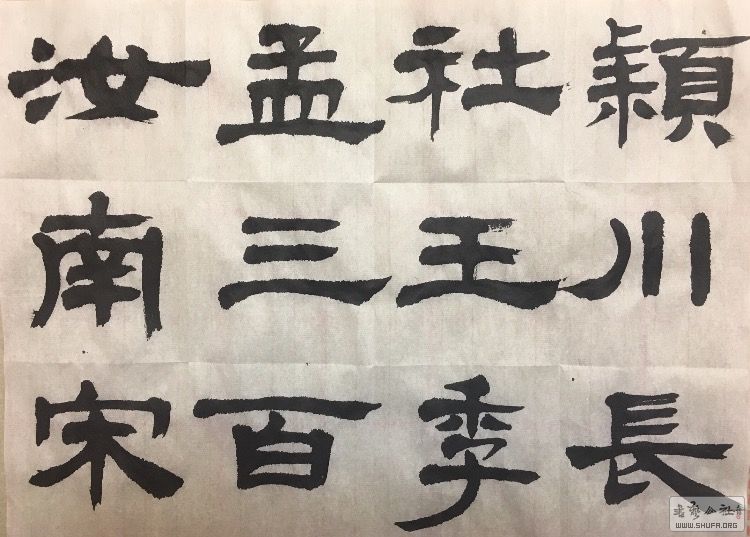 穎川長
社王季
孟三百
汝南宋
书艺公社
WWW.SHUFA.ORG